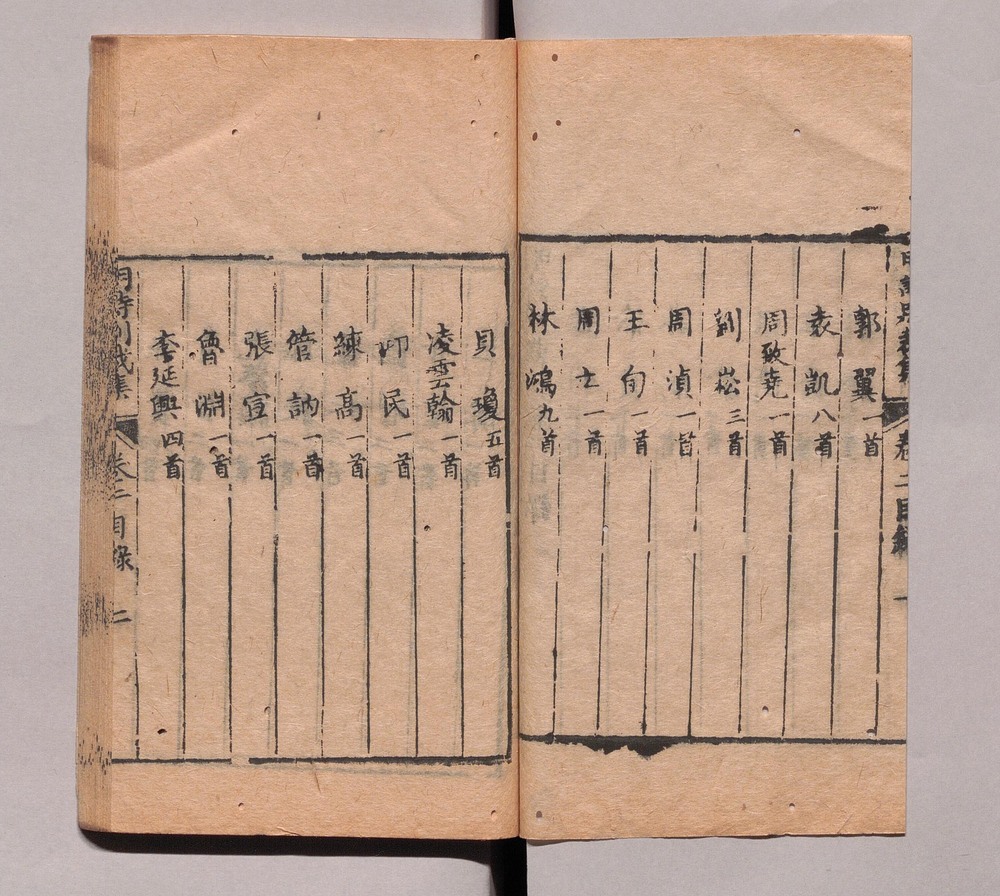 卷二目錄 一
郭翼 一首
袁凱 八首
周致堯 一首
劉崧 三首
周湞 一首
王㒰 一首
周士 一首
林鴻 九首
貝瓊 五首
凌雲翰 一首
民 一首
練高 一首
管訥 一首
張宣 一首
魯淵 一首
李延興 四首
明詩別裁集 卷二目錄 二